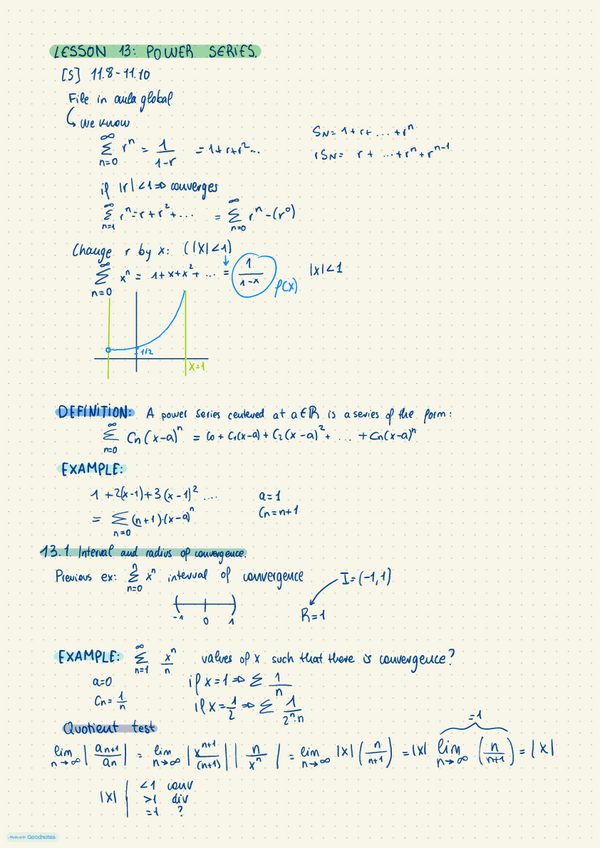 LESSON 13: POWER SERIES.
[S] 11.8-11.10
File in aula global
↳ we know
∞∑n=0 rⁿ = 1/(1-r) = 1+r+r²...
S_N = 1+r+...+rⁿ
rS_N = r+...+rⁿ+rⁿ⁻¹
if |r|<1 ⇒ converges
∞∑n=1 rⁿ = r+r²+... = ∞∑n=0 rⁿ-(r⁰)
Change r by x: (|x|<1)
∞∑n=0 xⁿ = 1+x+x²+... = 1/(1-x) f(x) |x|<1
1/2
x=1
DEFINITION: A power series centered at a∈ℝ is a series of the form:
∞∑n=0 Cn(x-a)ⁿ = C0+C1(x-a)+C2(x-a)²+ ... +Cn(x-a)ⁿ
EXAMPLE:
1+2(x-1)+3(x-1)² ... a=1
= ∑n=0 (n+1)(x-a)ⁿ Cn=n+1
13.1 Interval and radius of convergence.
Previous ex: ∑n=0 xⁿ interval of convergence I=(-1,1)
-1 0 1 R=1
EXAMPLE: ∞∑n=1 xⁿ/n values of x such that there is convergence?
a=0 if x=1 ⇒ ∑ 1/n
Cn=1/n if x=1/2 ⇒ ∑ 1/(2ⁿ·n)
Quotient test
=1
lim n→∞ |an+1/an| = lim n→∞ |xⁿ⁺¹/(n+1)| |n/xⁿ| = lim n→∞ |x| (n/(n+1)) = |x| lim n→∞ (n/(n+1)) = |x|
|x| <1 conv
>1 div
=1 ?
Made with Goodnotes